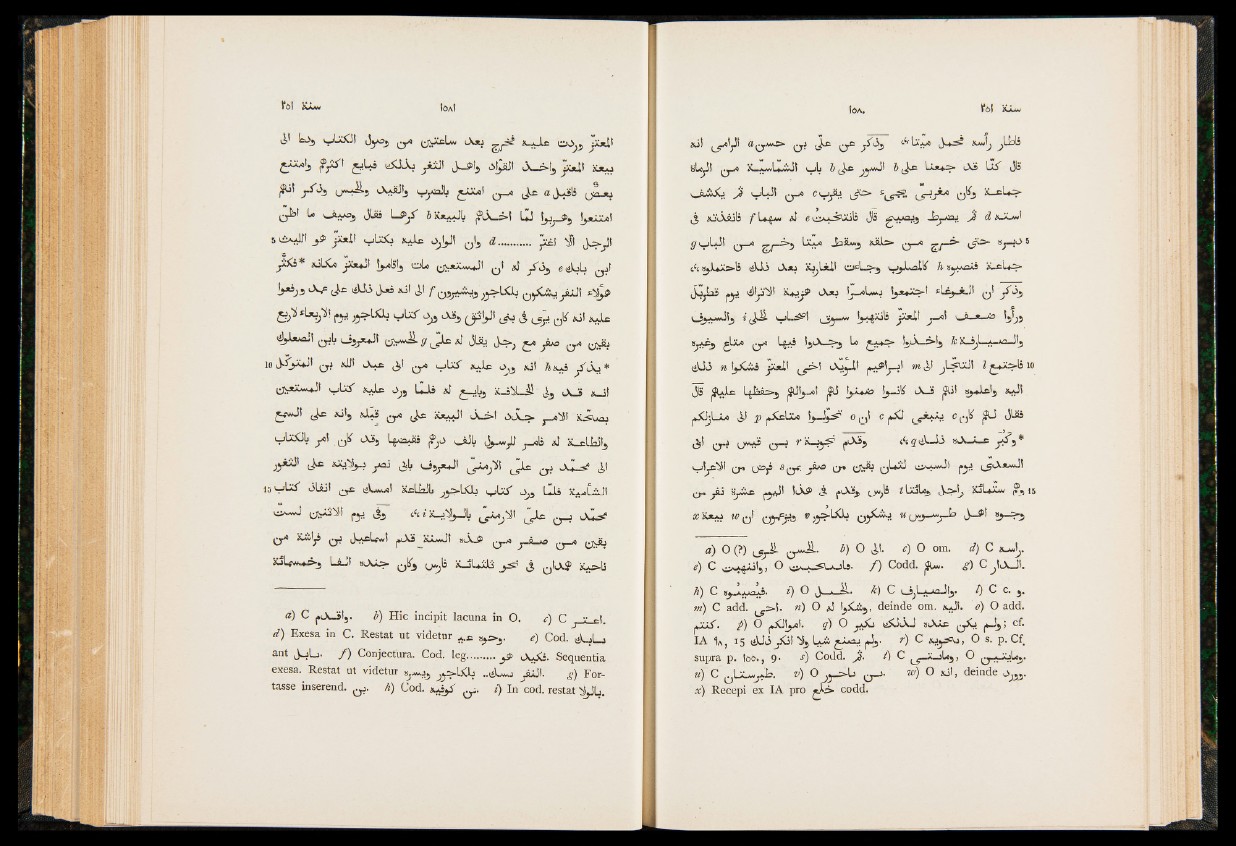 سنة ٢٥١
١٥٨٠
فاطار رأسه فحمل ميتا، وذكر عن على بن حسن a الرامى انه
قال كنّا قد جمعنا على b السور على b باب الشمّاسيّة من الرماة
جماعة وكان مغربىّ يجىء حتى يقرب c من الباب ثم يكشف
استه d ثم يضرط ويصيح قال فانتخبت e له سهما f فانفذته فى
دبره حتى خرج من حلقه وسقط ميّتا وخرج من الباب g
جماعة فنصبوه h كالمصلوب وجاءت المغاربة بعد ذلك فاحتملوه،
وذكر ان الغوغاء اجتمعوا بسامرّا بعد هزيمة الاتراك يوم قطربّل
ورأوا ضعف امر المعتزّ فانتهبوا سوق اصحاب الحلى i والسيوف
والصيارفة k واخذوا جميع ما وجدوا فيها من متاع وغيره
فاجتمع l التجّار الى m ابرهيم المؤيّد اخى المعتزّ فشكوا n ذلك
اليه واعلموه انهم قد كانوا ضمنوا لهم اموالهم وحفظها عليهم قال
فقال لهم كان c ينبغى لكم c ان o تحوّلوا متاعكم p الى منازلكم
*وكبر عنده ذلك q، وقدم نحوبة r بن قيس بن ابى
السعدى يوم السبت لثمان بقين من صفر بمن s فرض من الاعراب
وهم ستّمائة راجل ومائتا t فارس وقدم فى هذا اليوم عشرة نفر من
وجوه اهل طرسوس u يشكون بلكاجور v ويزعمون ان w بيعة x
a) O (?) الحسن الحرى. b) O الى. c) O om. d) C راسه.
e) C وانتهيت, O فانتحبت. f) Codd. سهم. g) C النار.
h) C فيصيبوه. i) O الخيل. k) C والسيارف. l) C c. و.
m) C add. اخى. n) O وشكوا له, deinde om. اليه. o) O add.
كنتم. p) O اموالكم. q) O ولم يكن عنده لذلك يكبر; cf.
IA ٩٨, 15 ولم يصنع شيئا ولا اكبر ذلك. r) C بحونه, O s. p. Cf.
supra p. ١٥٥٠, 9. s) Codd. ثم. t) C وماىتى, O ومايتين.
u) C طبرستان. v) O بن ناجور. w) O انه, deinde وورد.
x) Recepi ex IA pro خلع codd.
١٥٨١
سنة ٢٥١
المعتزّ وردت عليه فخرج بعد ساعتين من وصول الكتاب ودعا الى
بيعة المعتزّ واخذ القوّاد واهل الثغر بذلك فبايع اكثرهم وامتنع
بعض فاقبل a على من امتنع بالضرب والقيد والحبس وذكر انهم
امتنعوا وهربوا لمّا اخذهم بالبيعة b كرها فقال وصيف ما اظنّ
الرجل الا اغترّ c ........... d وان الوارد عليه بكتاب المعتزّ هو الليث
ابن بابك e وذكر له ان المستعين مات واقاموا المعتزّ مكانه *فكثّر
هؤلاء النفر يشكون بلكاجور ويشيرون f الى انه فعل ذلك على عمد ورفعوا
عليه انه كان يرى فى بنى الواثق وقد ورد كتاب بلكاجور يوم الاربعاء لاربع
بقين من صفر مع رجل يقال له على g الحسين المعروف بابن الصعلوك
*يذكر فيه h انه ورد عليه كتاب من ابى عبد الله بن المتوكّل
انه قد ولى الخلافة وبايع له فلما ورد عليه كتاب المستعين
بصحّة الامر جدّد اخذ البيعة على من قبله وانه على السمع
والطاعة له فامر للرسول بالف درهم فقبضها وقد كان امر بالكتاب
الى محمد بن على الارمنى المعروف بابى نصر بولايته على الثغور
الشأمية فلما ورد كتاب بلكاجور بالطاعة امسك عن انفاذ كتاب
محمد بن على الارمنى بالولاية i، وفى يوم الاثنين لستّ
بقين من صفر من هذه السنة قدم اسمعيل بن فراشة من
ناحية همذان فى نحو ثلثمائة فارس وكان جنده الفا وخمسمائة
a) C واقدم. b) Hic incipit lacuna in O. c) C اعتر.
d) Exesa in C. Restat ut videtur وحوه عم. e) Cod. بسابك
ant بابل. f) Conjectura. Cod. leg......... فكيد هو. Sequentia
exesa. Restat ut videtur النفر بسك.. بلكاجور ويسره. g) For-
tasse inserend. بن. h) Cod. بن كوفيه. i) In cod. restat بالولا.
5
10
15
5
10
15